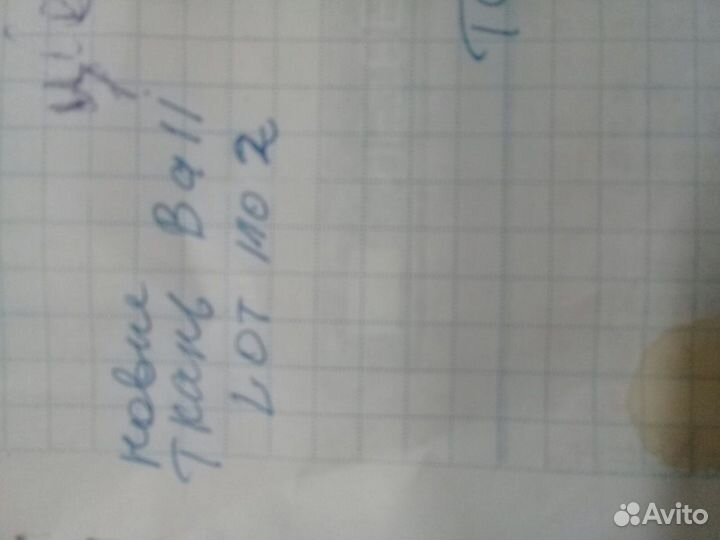 новые
Ткань Bali
LOT 1102
Avito